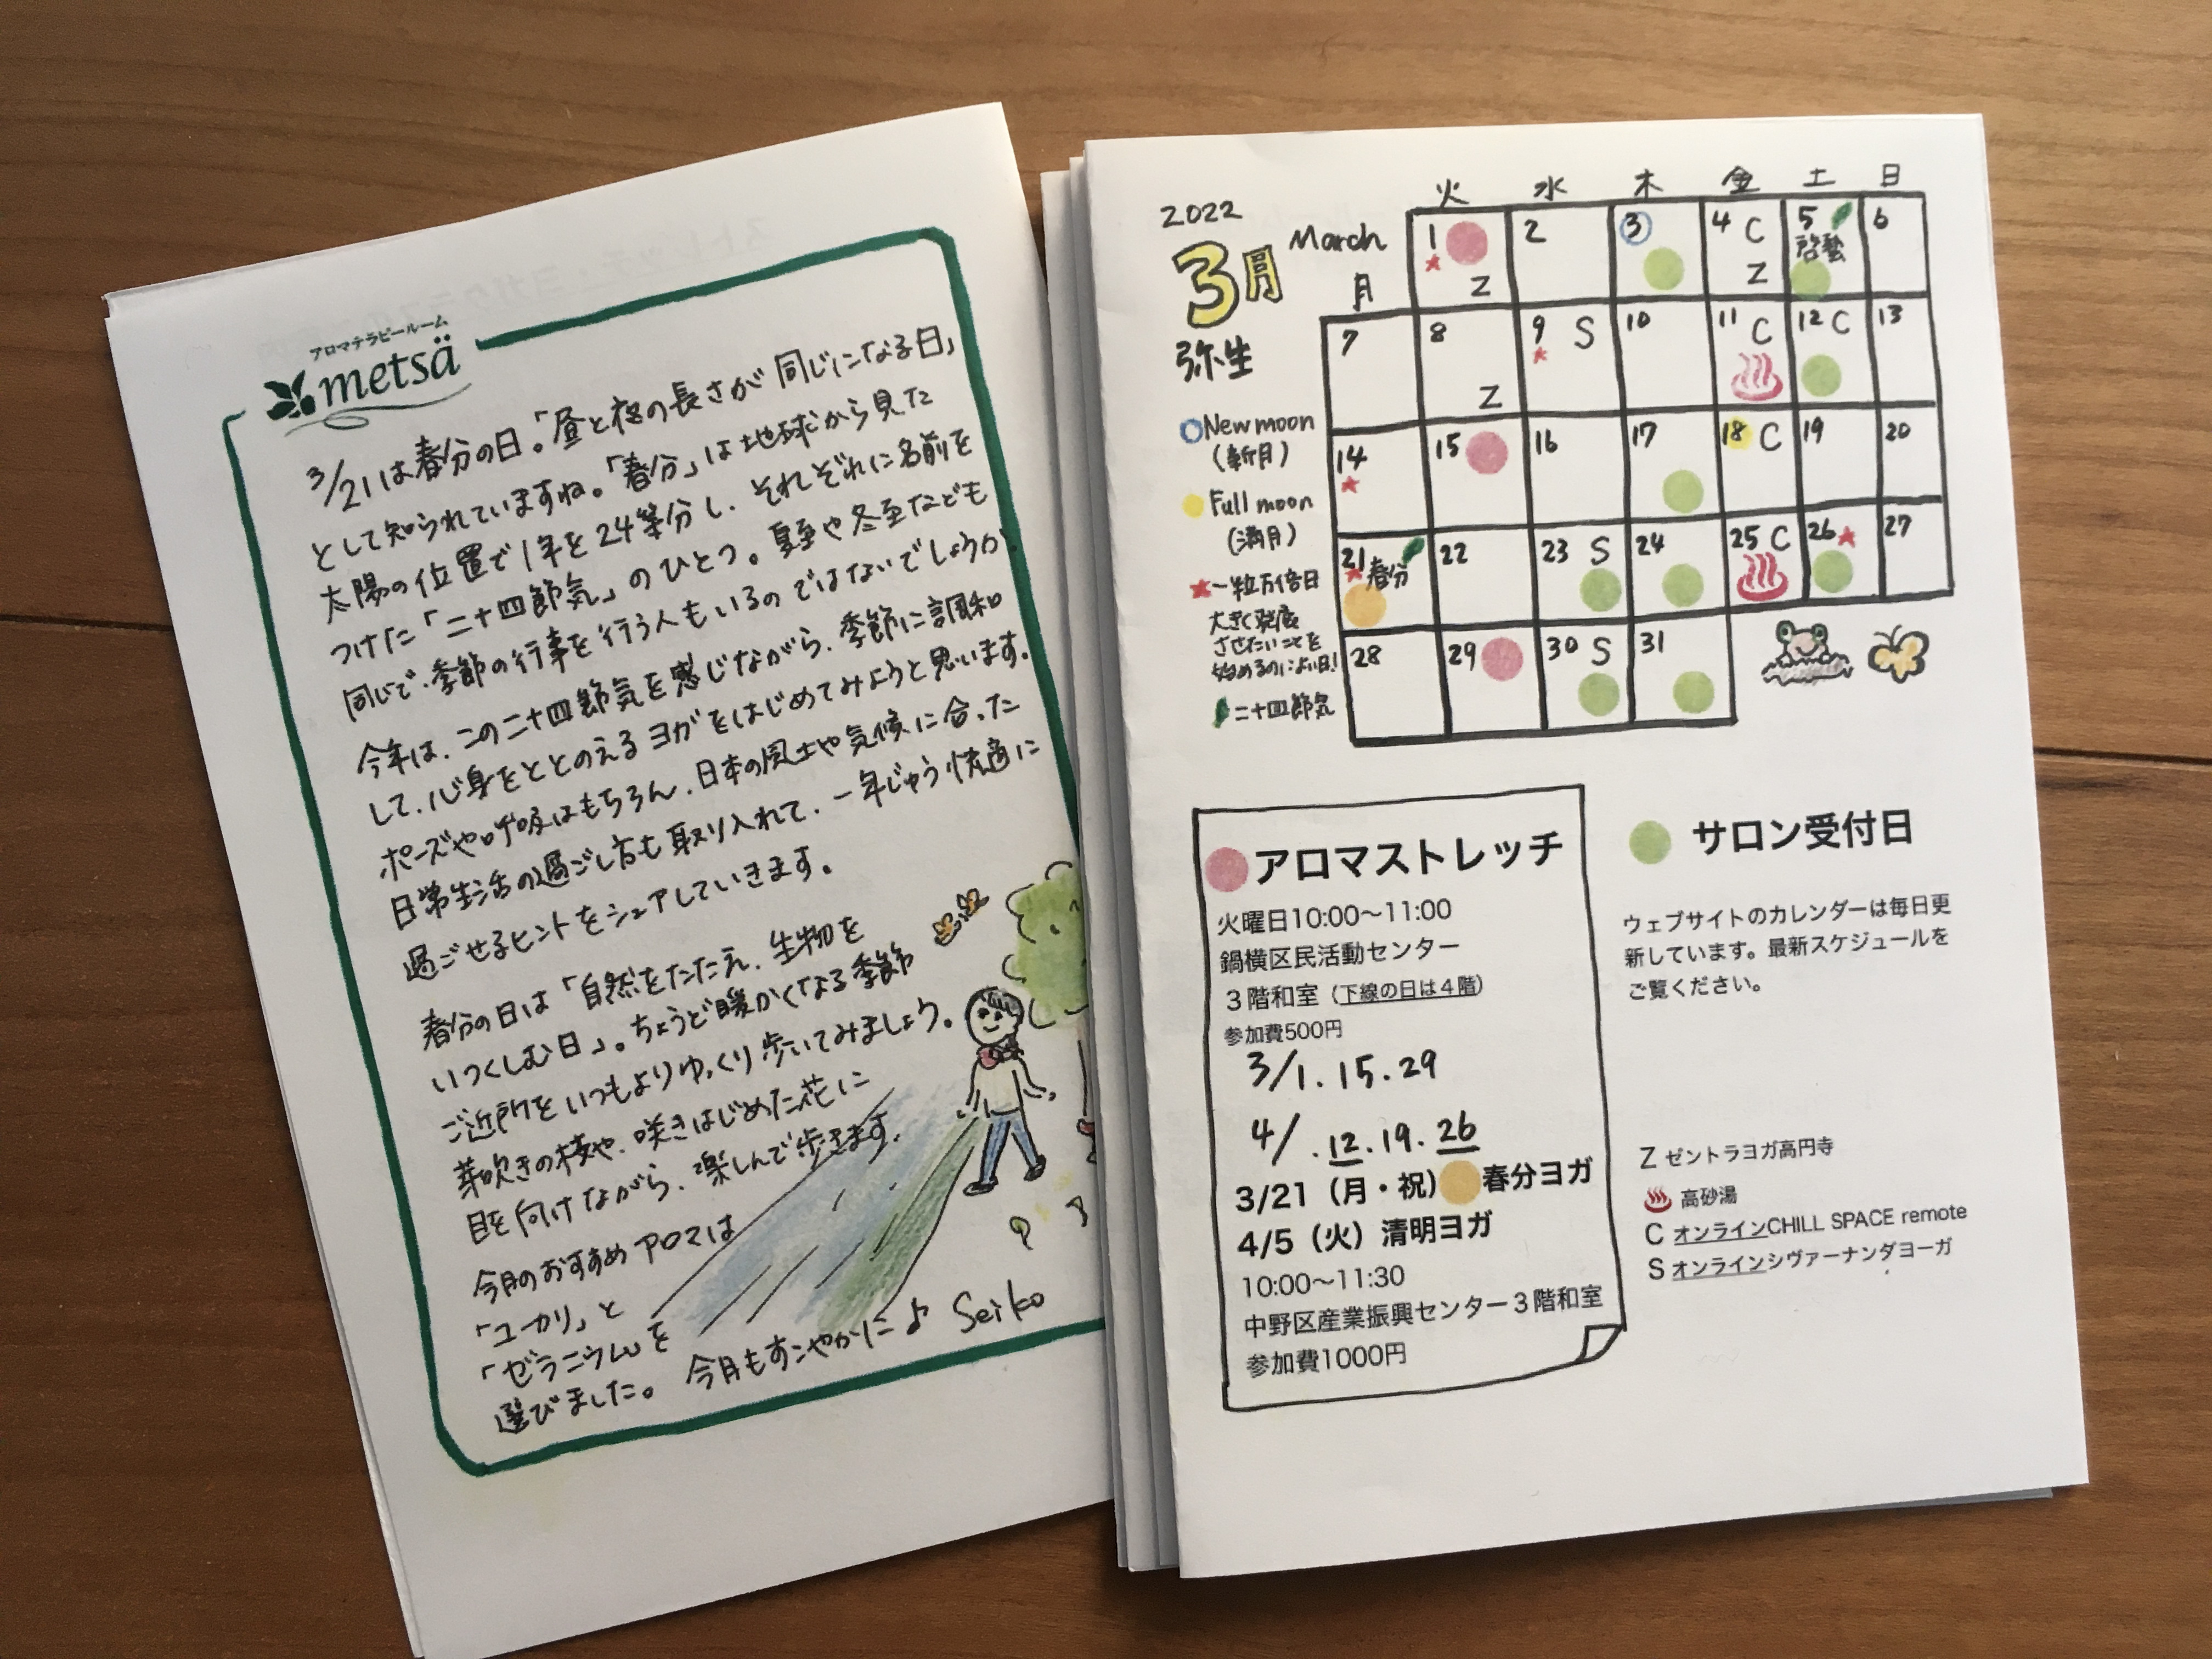 アロマテラピールーム
metsä
3/21は春分の日。「昼と夜の長さが同じになる日」
として知られていますね。「春分」は地球から見た
太陽の位置で1年を24等分し、それぞれに名前を
つけた「二十四節気」のひとつ。夏至や冬至なども
同じで、季節の行事を行う人もいるのではないでしょうか。
今年は、この二十四節気を感じながら、季節に調和
して、心身をととのえるヨガをはじめてみようと思います。
ポーズや呼吸はもちろん、日本の風土や気候に合った
日常生活の過ごし方も取り入れて、一年じゅう快適に
過ごせるヒントをシェアしていきます。
春分の日は「自然をたたえ、生物を
いつくしむ日」。ちょうど暖かくなる季節
ご近所をいつもよりゆっくり歩いてみましょう。
芽吹きの枝や、咲きはじめた花に
目を向けながら、楽しんで歩きます。
今月のおすすめアロマは
「ユーカリ」と
「ゼラニウム」を
選びました。 今月もすこやかに♪ Seiko
2022
3月 March
弥生
月 火 水 木 金 土 日
1 ★ Z 2 3 4 C Z 5 啓蟄 6
7 8 Z 9 ★ S 10 11 C ♨ 12 C 13
14 ★ 15 16 17 18 C 19 20
21 ★ 春分 22 23 S 24 25 C ♨ 26 ★ 27
28 29 30 S 31
New moon
(新月)
Full moon
(満月)
★一粒万倍日
大きく発展
させたいことを
始めるのによい日!
二十四節気
アロマストレッチ
火曜日10:00〜11:00
鍋横区民活動センター
3階和室（下線の日は4階）
参加費500円
3/1. 15. 29
4/ . 12. 19. 26
3/21（月・祝）春分ヨガ
4/5（火）清明ヨガ
10:00〜11:30
中野区産業振興センター3階和室
参加費1000円
サロン受付日
ウェブサイトのカレンダーは毎日更
新しています。最新スケジュールを
ご覧ください。
Z ゼントラヨガ高円寺
♨ 高砂湯
C オンラインCHILL SPACE remote
S オンラインシヴァーナンダヨーガ